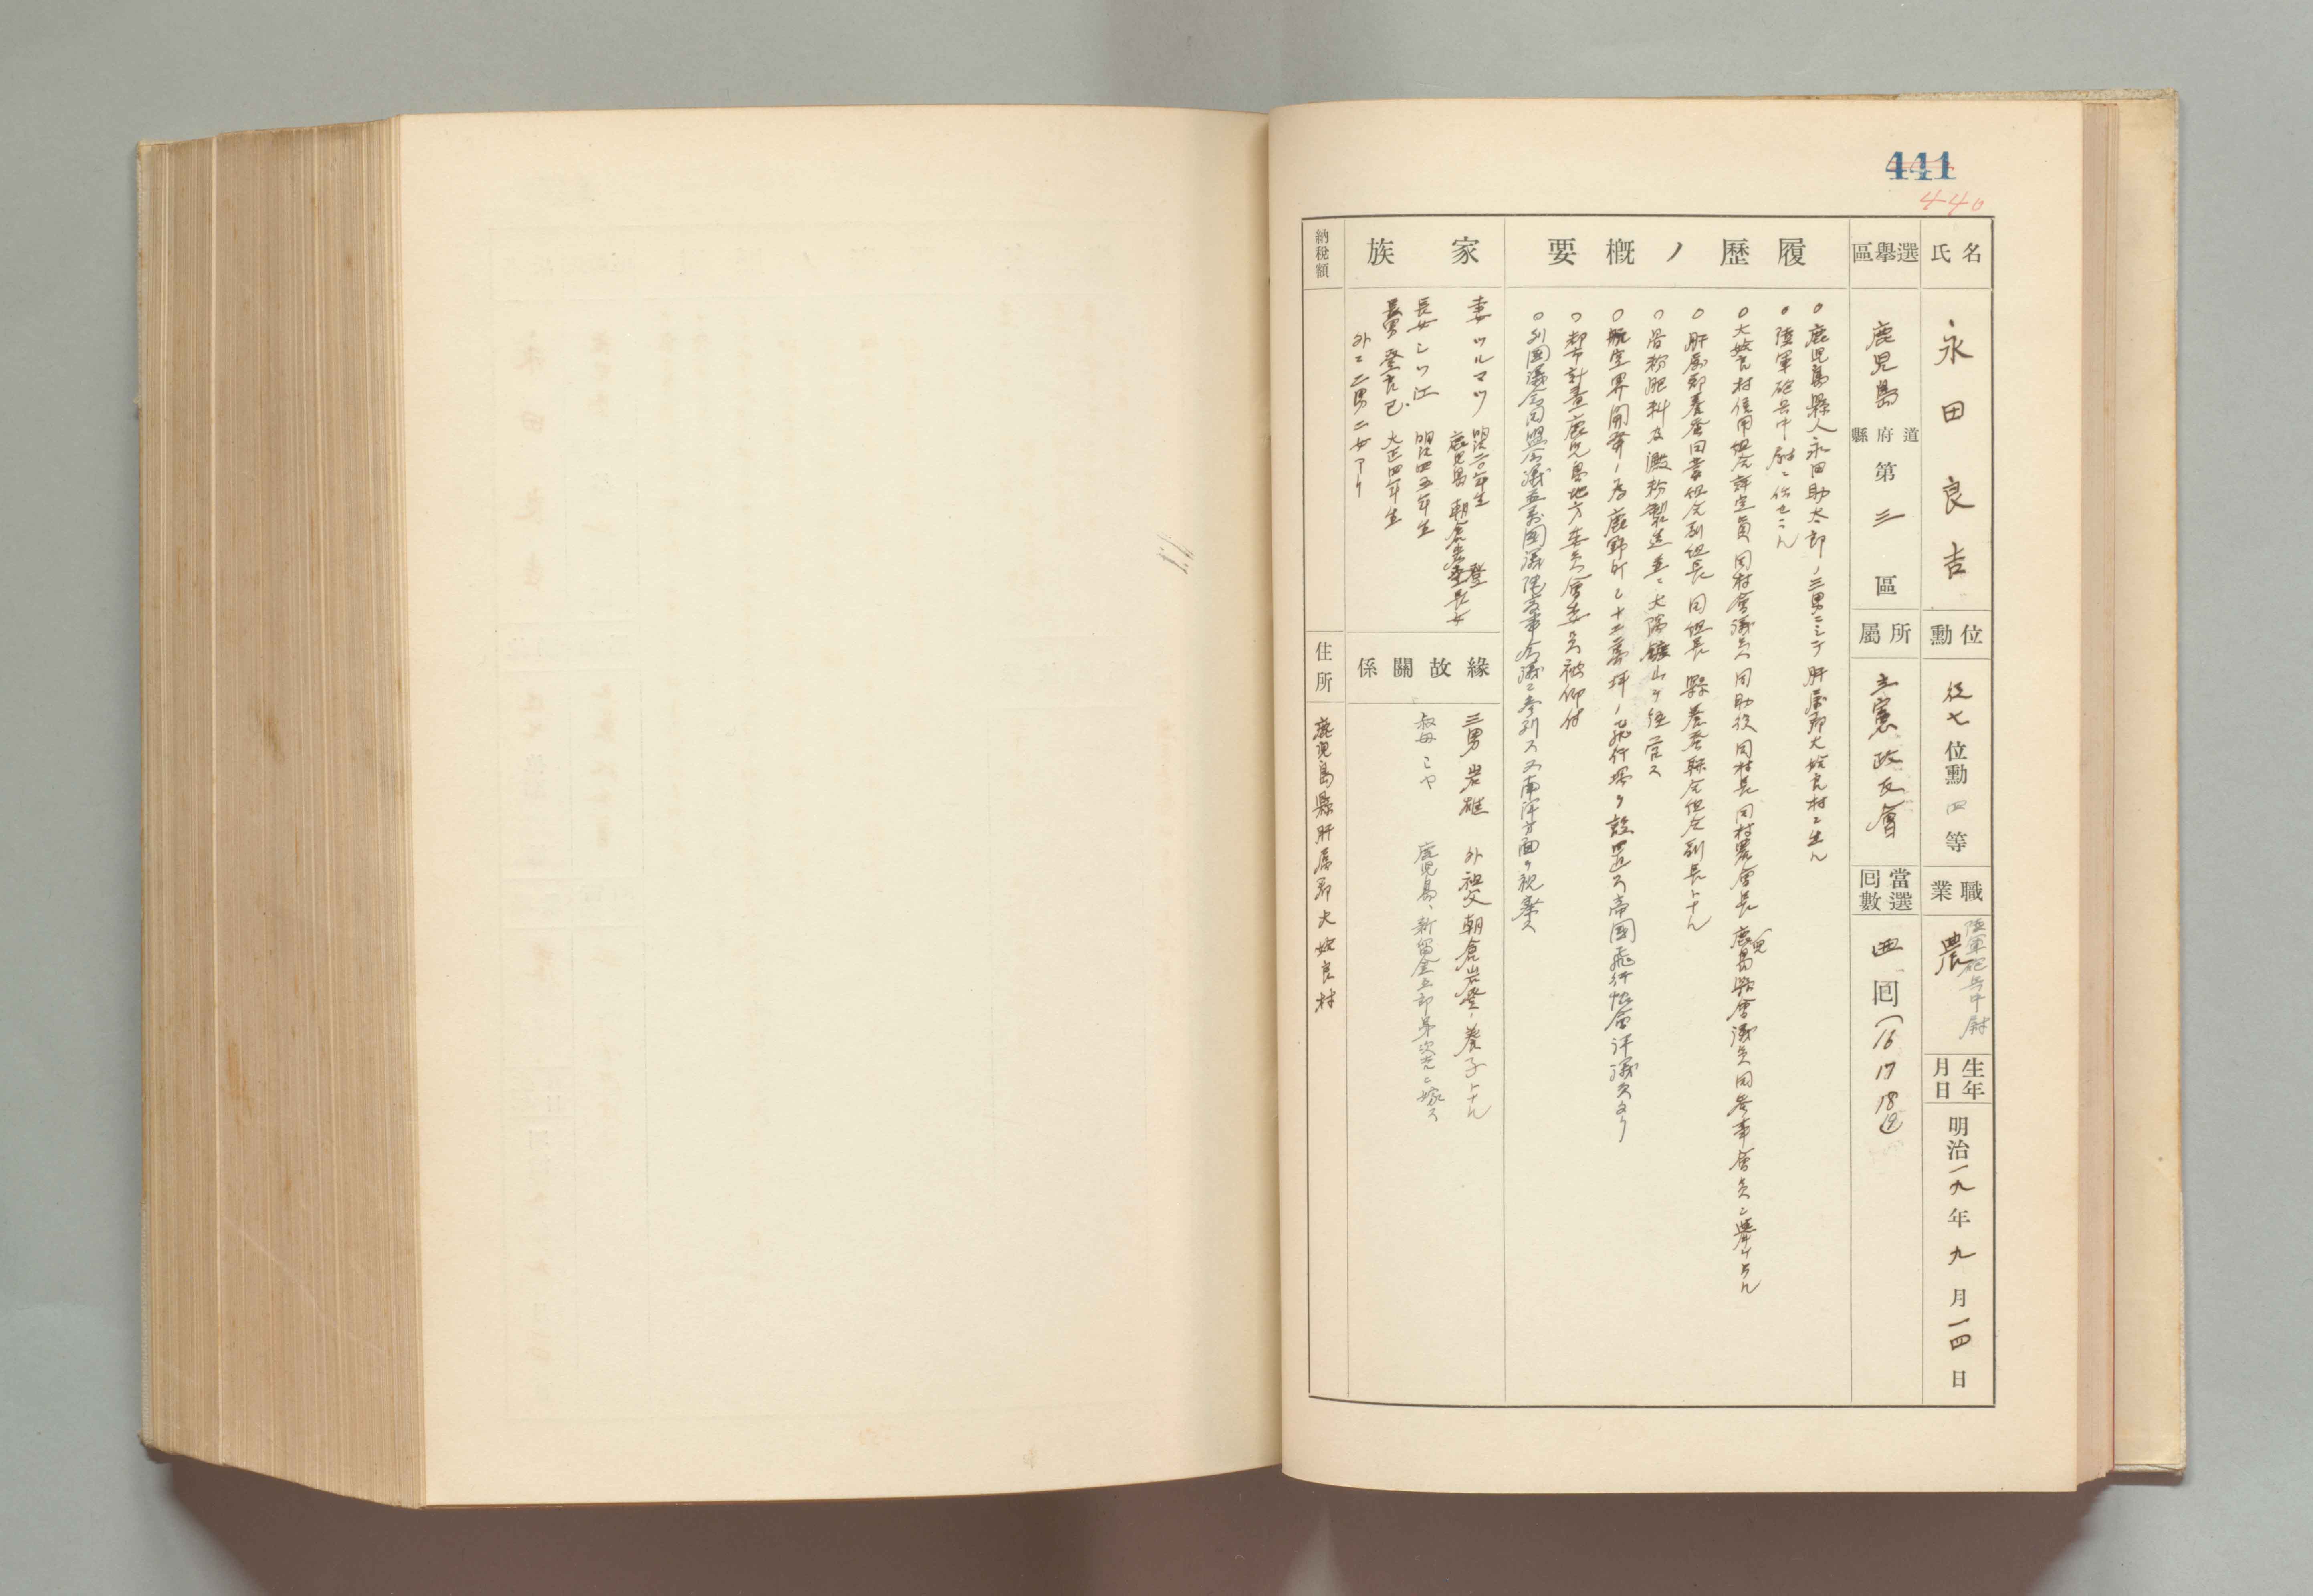 441
440
氏名
永田良吉
位勳
從七位勳四等
職業
陸軍砲兵中尉
農
生年月日
明治一九年九月一四日
選擧區
鹿児島
道府縣
第三區
所屬
立憲政友會
當選囘數
四囘(16 17 18 19)
履歷ノ概要
○鹿児島縣人永田助太郎ノ三男ニシテ肝属郡大姶良村ニ生ル
○陸軍砲兵中尉ニ任セラル
○大姶良村信用組合評定員同村會議員同助役同村長同村農會長鹿児島縣會議員同参事會員ニ擧ケラル
○肝属郡養蚕同業組合副組長同組長縣養蚕聯合組合副長トナル
○骨粉肥料及澱粉製造並ニ大隅鑛山ヲ経営ス
○航空界開発ノ為鹿野町ニ十二萬坪ノ飛行場ヲ設置ス帝国飛行協會評議員タリ
○都市計畫鹿児島地方委員會委員被仰付
○列国議会同盟会議並萬国議院商事会議ニ参列ス又南洋方面ヲ視察ス
家族
妻ツルマツ 明治二〇年生
鹿児島 朝倉岩登長女
登
長女シツ江 明治四五年生
長男登吉己 大正四年生
外ニ二男二女アリ
緣故關係
三男岩雄 外祖父朝倉岩登ノ養子トナル
叔母ミヤ 鹿児島、新留金五郎弟次吉ニ嫁ス
納稅額
住所
鹿児島縣肝属郡大姶良村